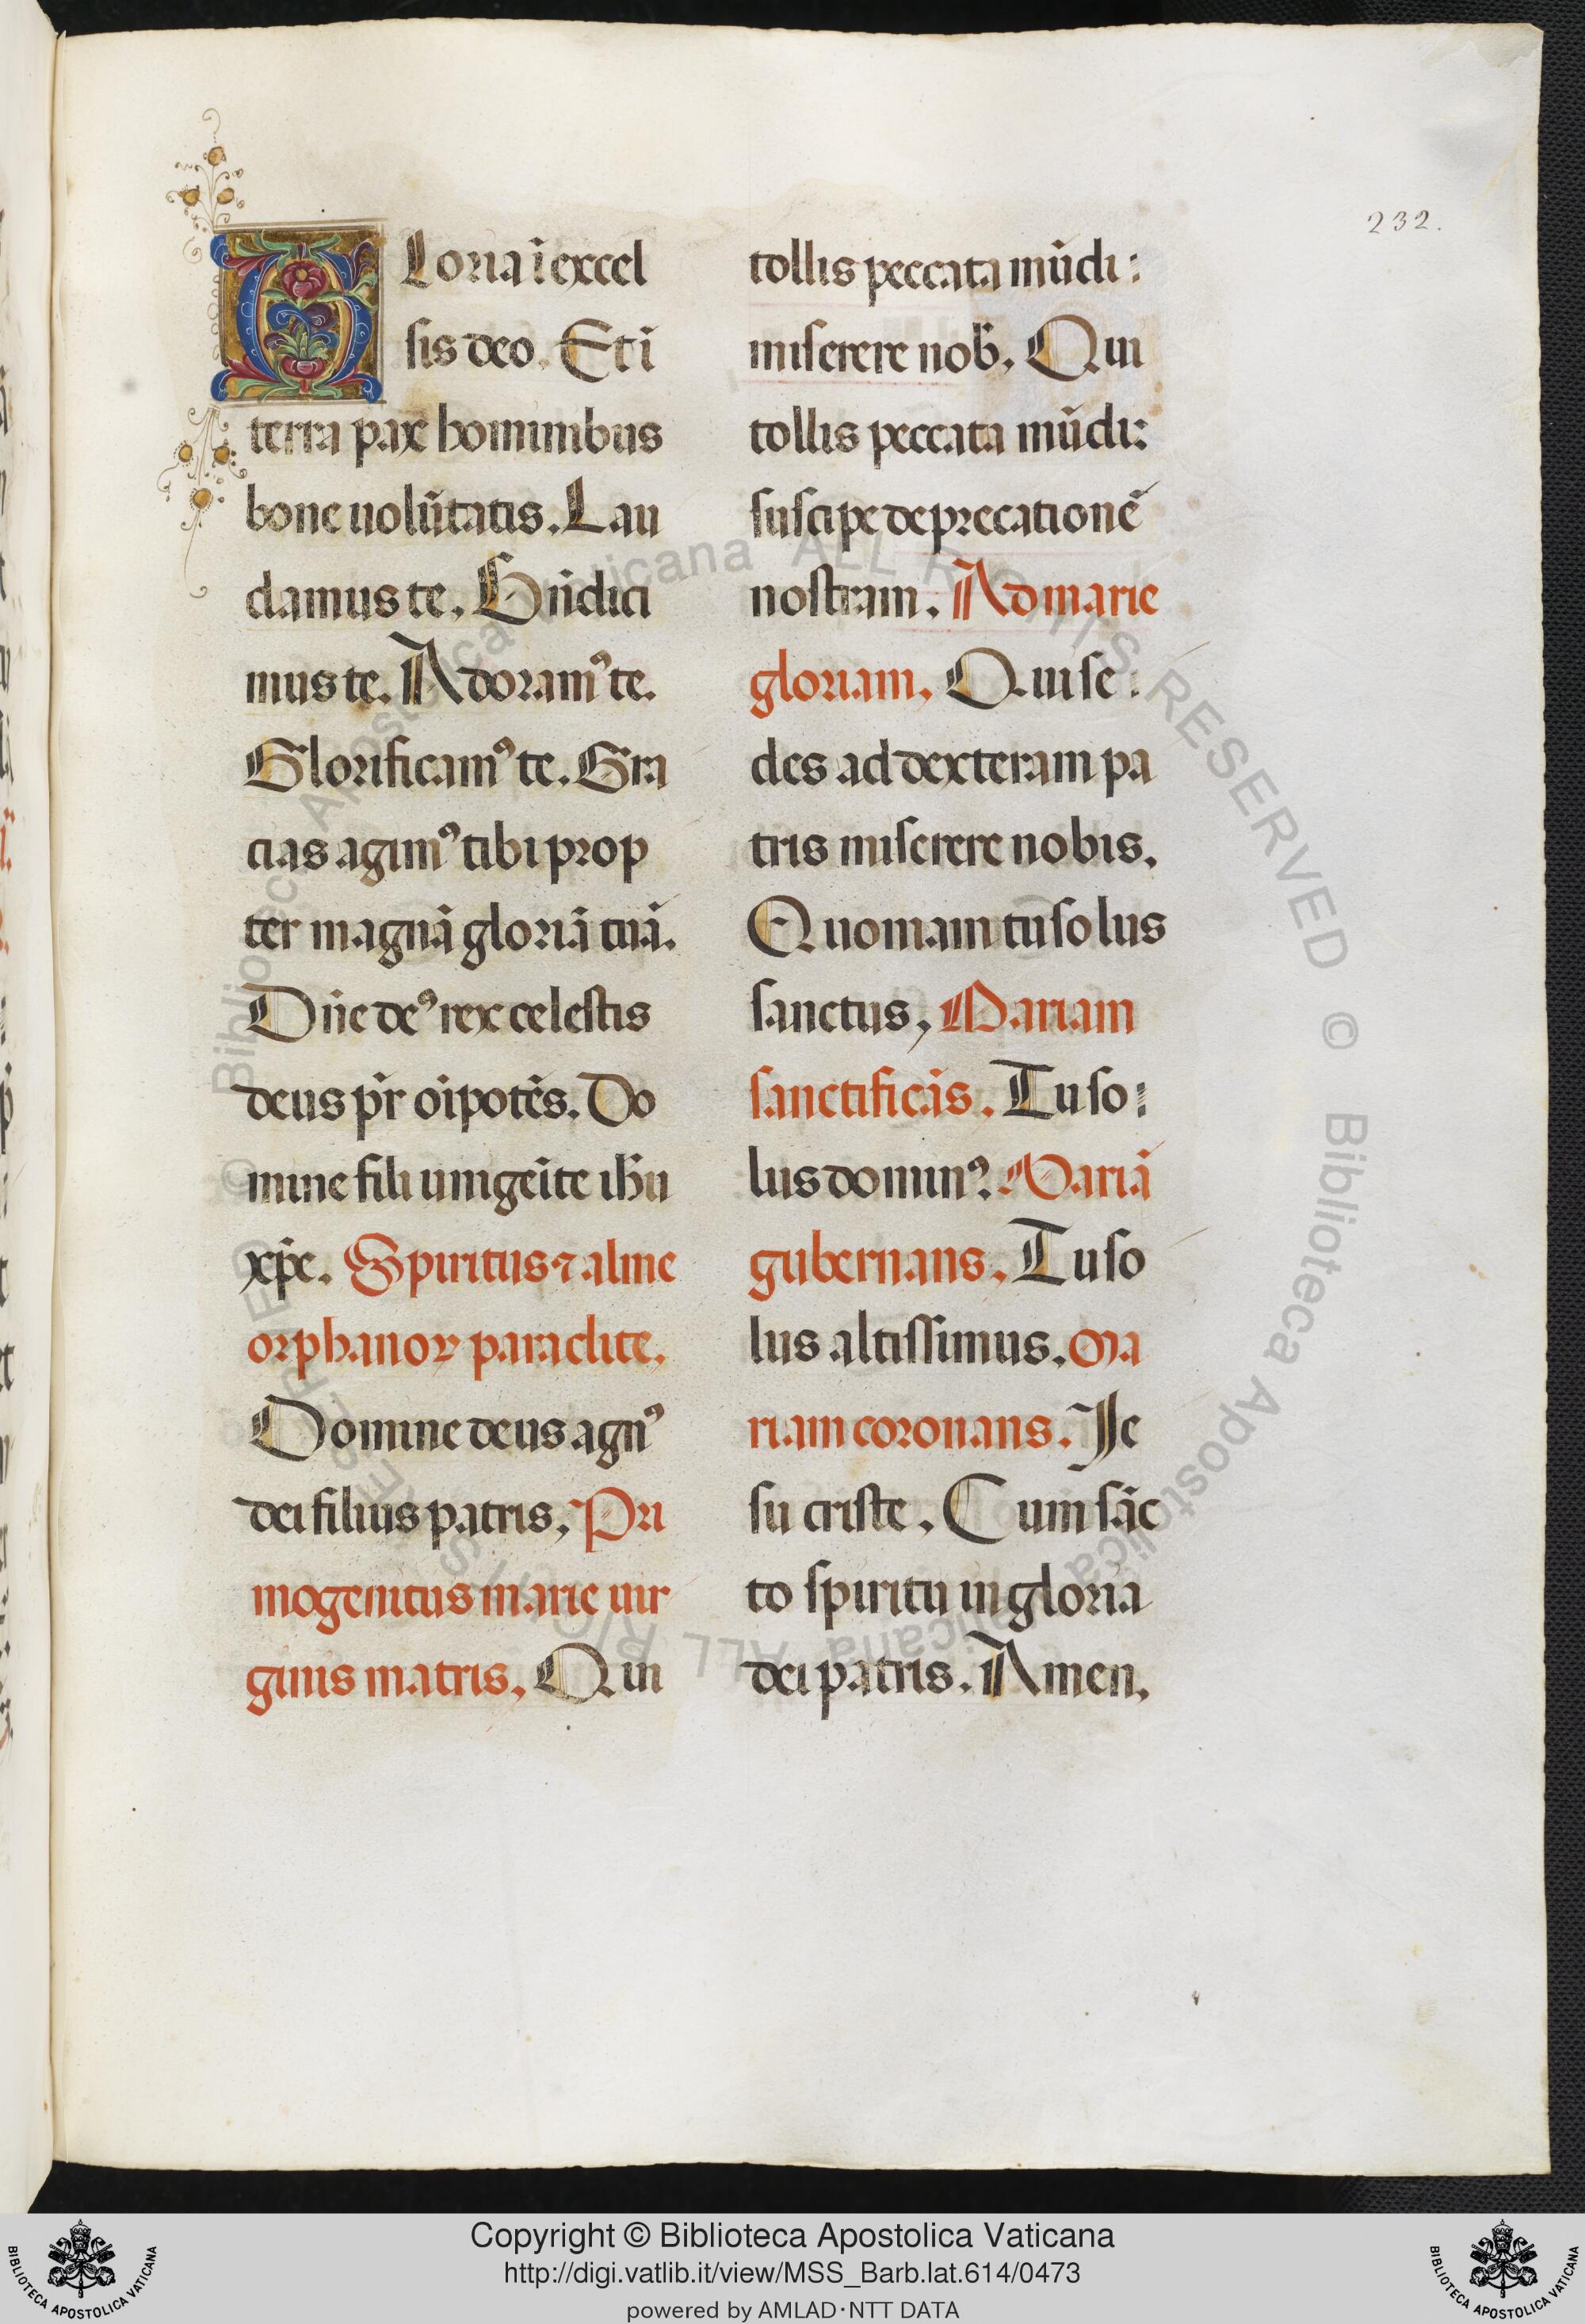 232.
GLoria ī excel
sis deo. Et ī
terra pax hominibus
bone uolūtatis. Lau
damus te. Bn̄dici
mus te. Adoramꝰ te.
Glorificamꝰ te. Gra
cias agimꝰ tibi prop
ter magnā gloriā tuā.
Dn̄e deꝰ rex celestis
deus pr̄ oīpotēs. Do
mine fili unigeīte ihū
xp̄e. Spiritus ⁊ alme
orphanoꝝ paraclite.
Domine deus agnꝰ
dei filius patris, Pri
mogenitus marie uir
ginis matris, Qui
tollis peccata mūdi:
miserere nob̄. Qui
tollis peccata mūdi:
suscipe deprecationē
nostram. Ad marie
gloriam. Qui se:
des ad dexteram pa
tris miserere nobis.
Quoniam tu solus
sanctus, Mariam
sanctificās. Tu so:
lus dominꝰ. Mariā
gubernans. Tu so
lus altissimus. Ma
riam coronans. Je
su criste. Cum sāc
to spiritu in gloria
dei patris. Amen.
© Biblioteca Apostolica Vaticana ALL RIGHTS RESERVED
© Biblioteca Apostolica Vaticana ALL RIGHTS RESERVED
Copyright © Biblioteca Apostolica Vaticana
http://digi.vatlib.it/view/MSS_Barb.lat.614/0473
powered by AMLAD·NTT DATA
BIBLIOTECA APOSTOLICA VATICANA
BIBLIOTECA APOSTOLICA VATICANA